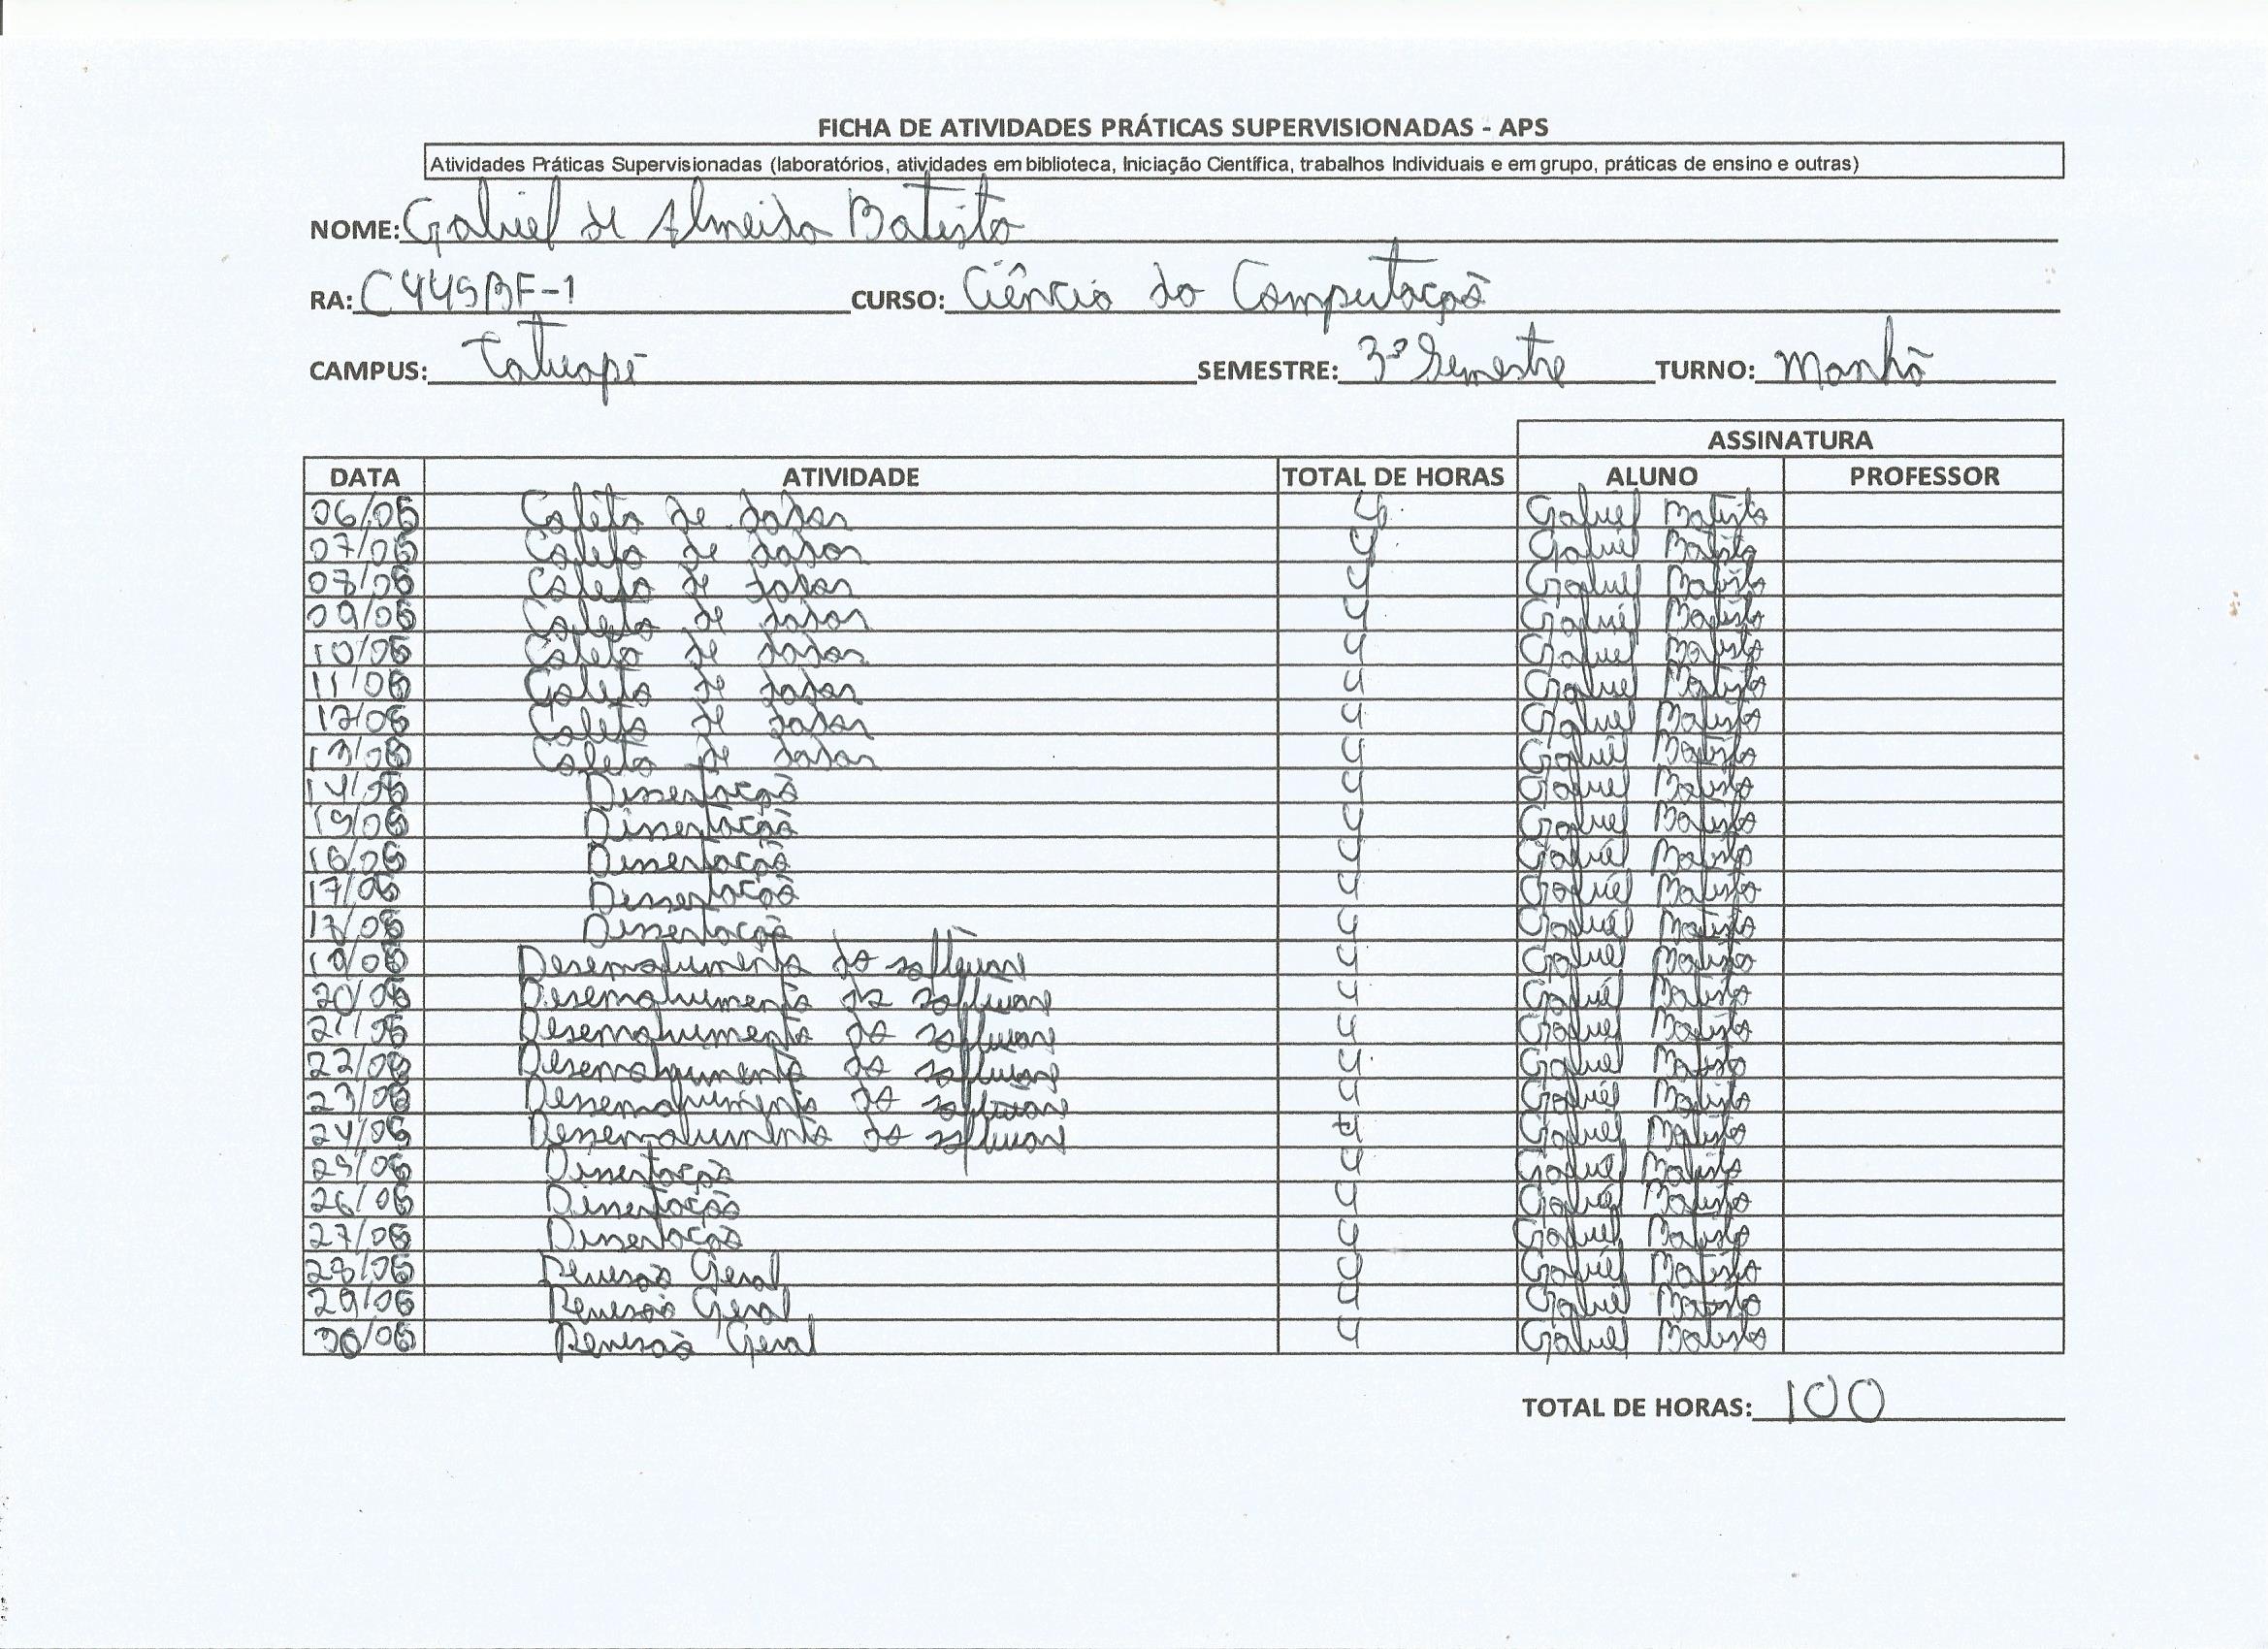 FICHA DE ATIVIDADES PRÁTICAS SUPERVISIONADAS - APS
Atividades Práticas Supervisionadas (laboratórios, atividades em biblioteca, Iniciação Científica, trabalhos Individuais e em grupo, práticas de ensino e outras)
NOME: Gabriel de Almeida Batista
RA: C445BF-1 CURSO: Ciência da Computação
CAMPUS: Tatuapé SEMESTRE: 3º Semestre TURNO: Manhã
ASSINATURA
DATA ATIVIDADE TOTAL DE HORAS ALUNO PROFESSOR
06/05 Coleta de dados 4 Gabriel Batista
07/05 Coleta de dados 4 Gabriel Batista
08/05 Coleta de dados 4 Gabriel Batista
09/05 Coleta de dados 4 Gabriel Batista
10/05 Coleta de dados 4 Gabriel Batista
11/05 Coleta de dados 4 Gabriel Batista
12/05 Coleta de dados 4 Gabriel Batista
13/05 Coleta de dados 4 Gabriel Batista
14/05 Dissertação 4 Gabriel Batista
15/05 Dissertação 4 Gabriel Batista
16/05 Dissertação 4 Gabriel Batista
17/05 Dissertação 4 Gabriel Batista
18/05 Dissertação 4 Gabriel Batista
19/05 Desenvolvimento do software 4 Gabriel Batista
20/05 Desenvolvimento do software 4 Gabriel Batista
21/05 Desenvolvimento do software 4 Gabriel Batista
22/05 Desenvolvimento do software 4 Gabriel Batista
23/05 Desenvolvimento do software 4 Gabriel Batista
24/05 Desenvolvimento do software 4 Gabriel Batista
25/05 Dissertação 4 Gabriel Batista
26/05 Dissertação 4 Gabriel Batista
27/05 Dissertação 4 Gabriel Batista
28/05 Revisão Geral 4 Gabriel Batista
29/05 Revisão Geral 4 Gabriel Batista
30/05 Revisão Geral 4 Gabriel Batista
TOTAL DE HORAS: 100